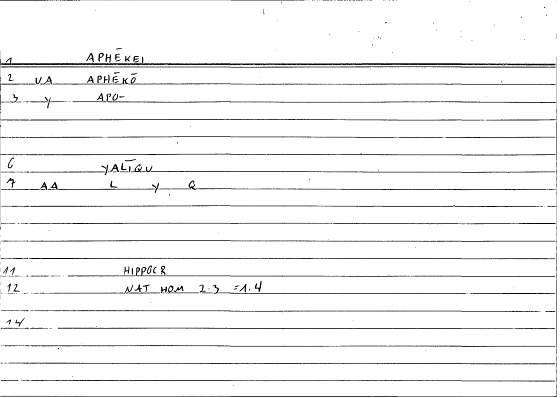 1 APHĒKEI
2 VA APHĒKŌ
3 Y APO-
6 YALĪQU
7 AA L Y Q
11 HIPPOCR
12 NAT HOM 2.3 =1.4
14